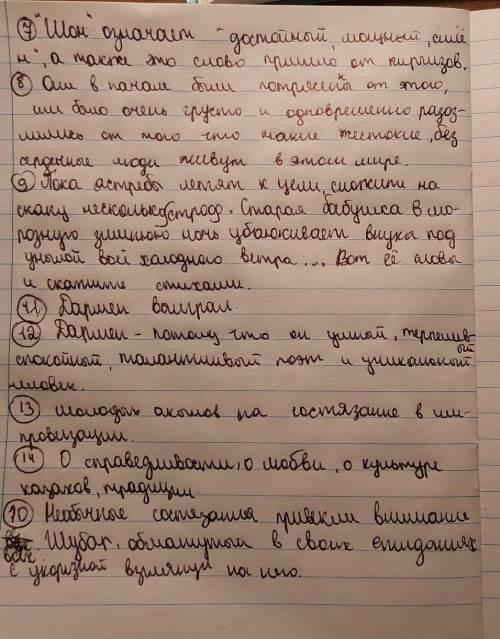 ⑦ "Шон" означает "достойный, мощный, силён", а также это слово пришло от киргизов.
⑧ Они в начале были потрясены от этого,
им было очень грустно и одновременно разоз-
лились от того что такие жестокие, без
сердечные люди живут в этом мире.
⑨ Пока ястребы летят к цели, сложите на
скаку несколько строф. Старая бабушка в мо-
розную зимнюю ночь убаюкивает внука под
унылой вой холодного ветра... Вот её слова
и скажите стихами.
⑪ Дармен выиграл.
⑫ Дармен - потому что он умный, терпеливый
спокойный, талантливый поэт и уникальный
человек.
⑬ молодых акынов на состязание в им-
провизации.
⑭ О справедливости, о любви, о культуре
казахов, традиции.
⑩ Необычные состязания привлекли внимание
всех. Шубар, обманутый в своих ожиданиях
с укоризной взглянул на него.